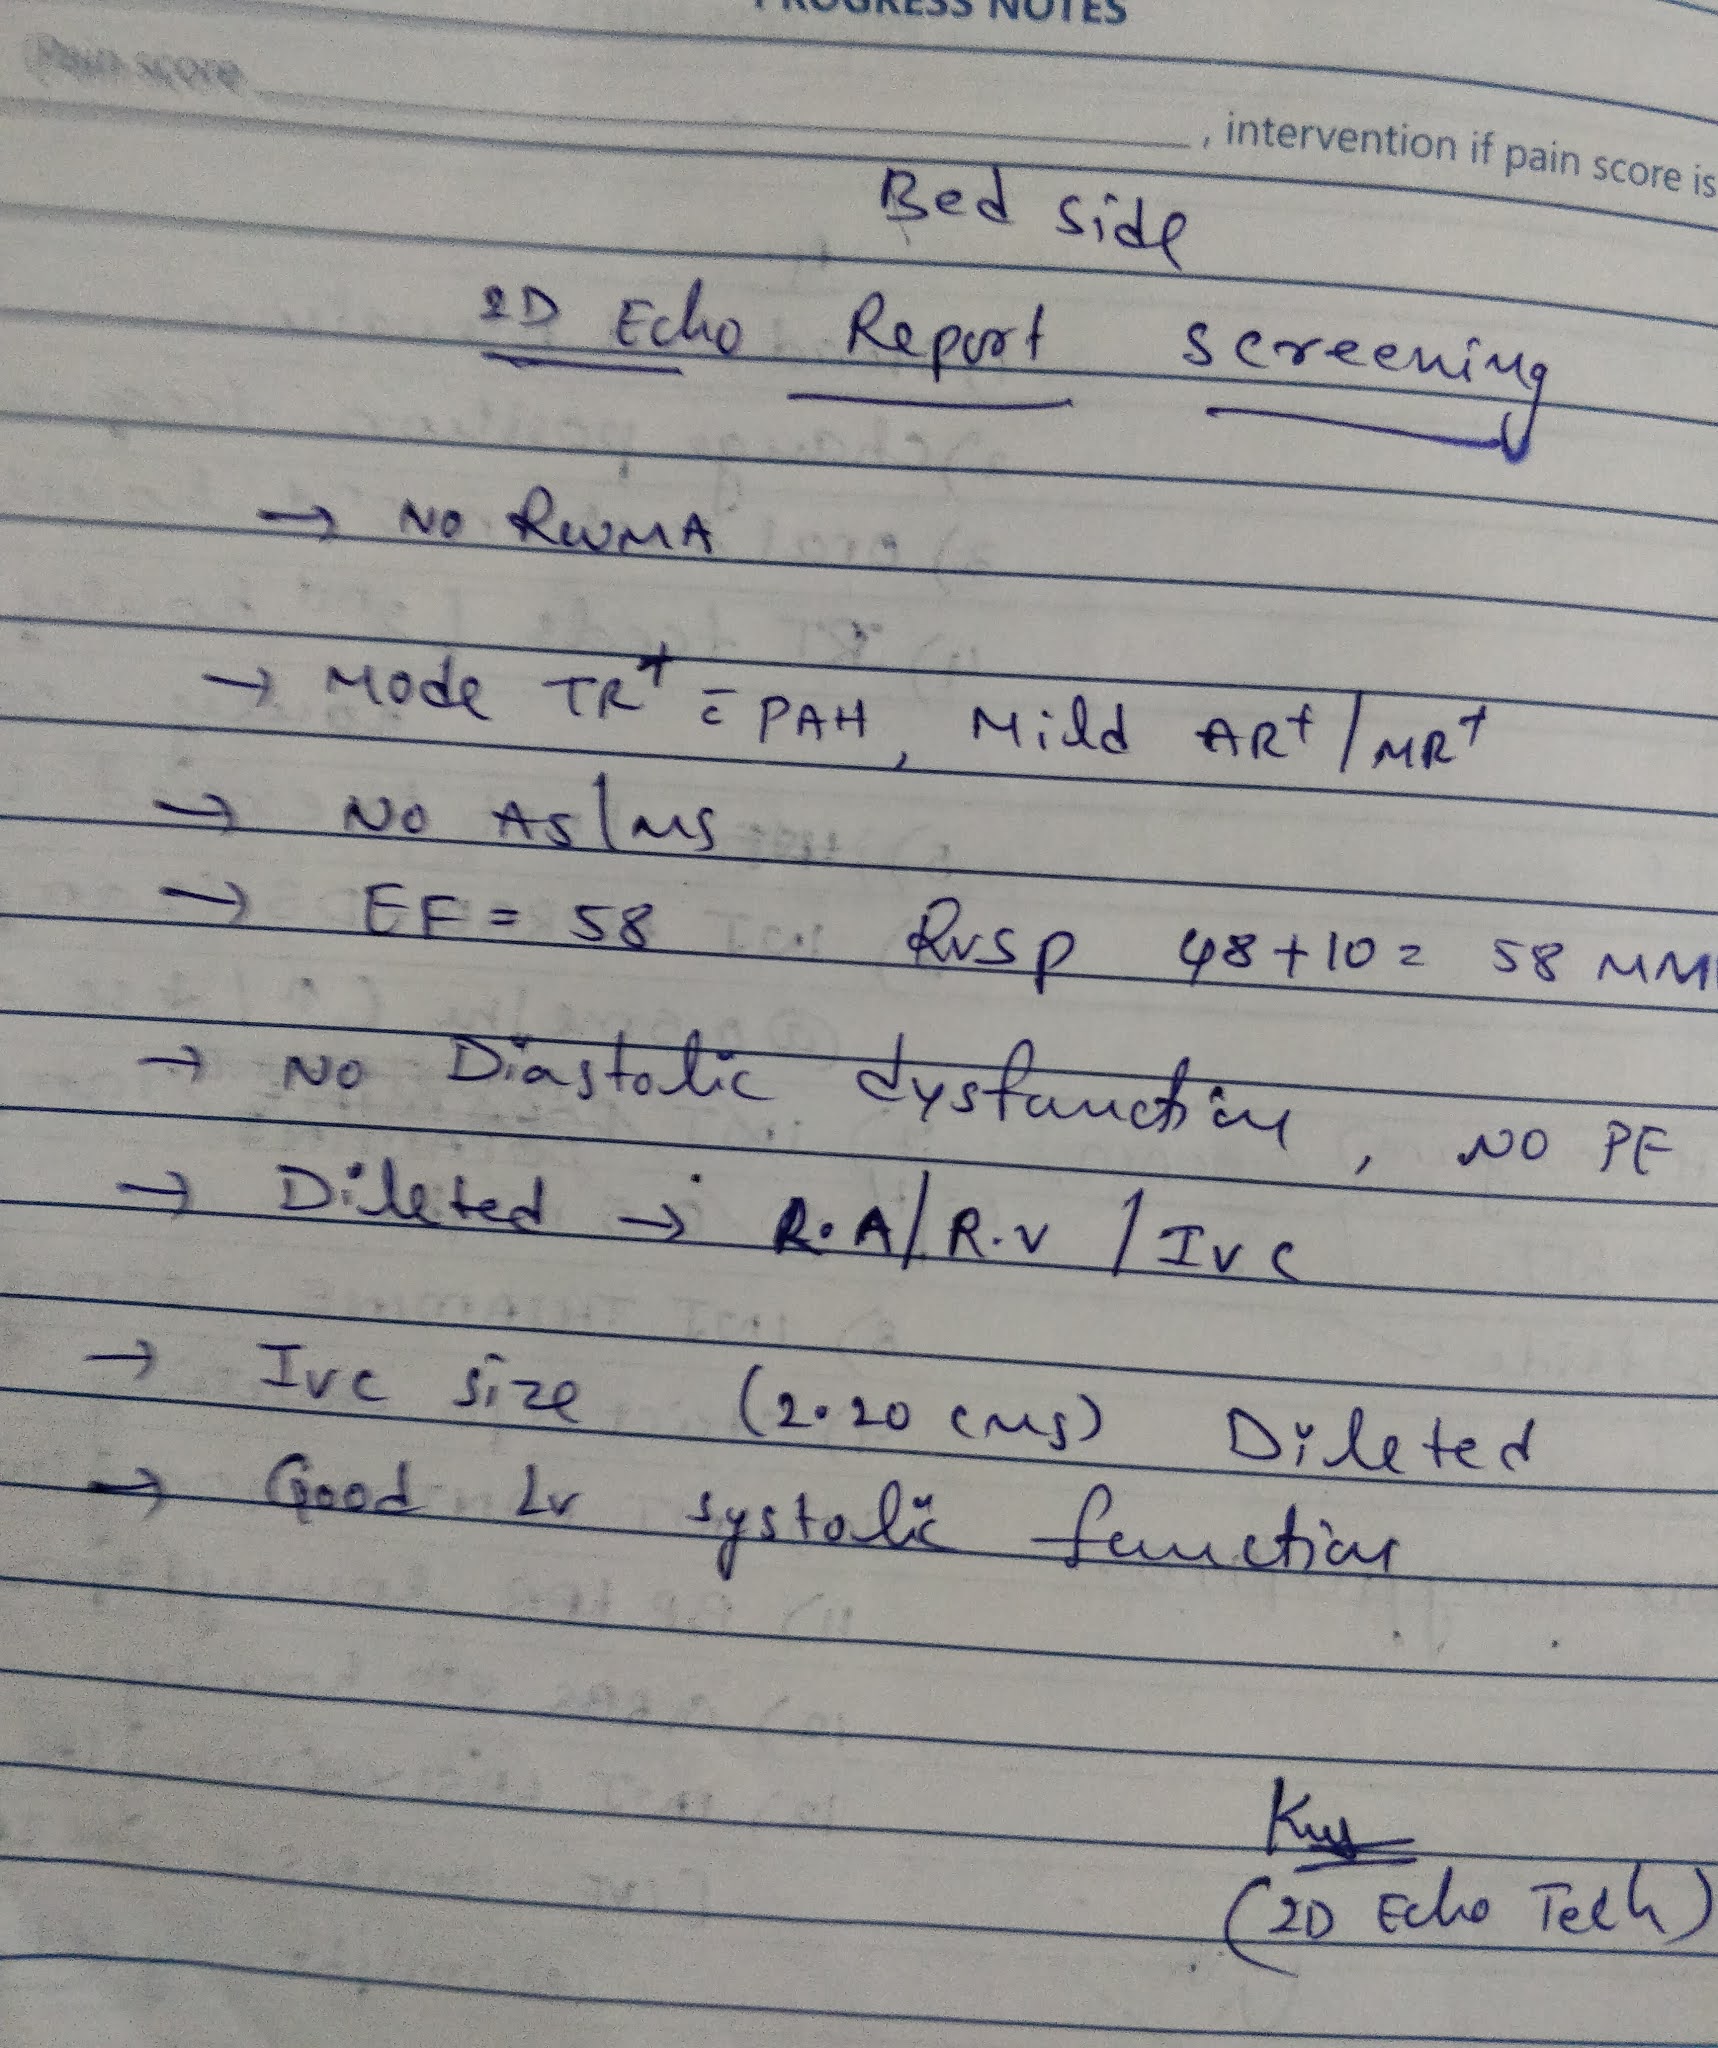 PROGRESS NOTES
Pain score , intervention if pain score is
Bed side
2D Echo Report screening
→ NO RWMA
→ Mode TR+ = PAH, Mild AR+/MR+
→ NO AS/MS
→ EF = 58 RVSP 48+10= 58 MM
→ NO Diastolic dysfunction, NO PE
→ Dileted → R.A/R.V/IVC
→ IVC size (2.20 cms) Dileted
→ Good LV systolic function
(2D Echo Tech)